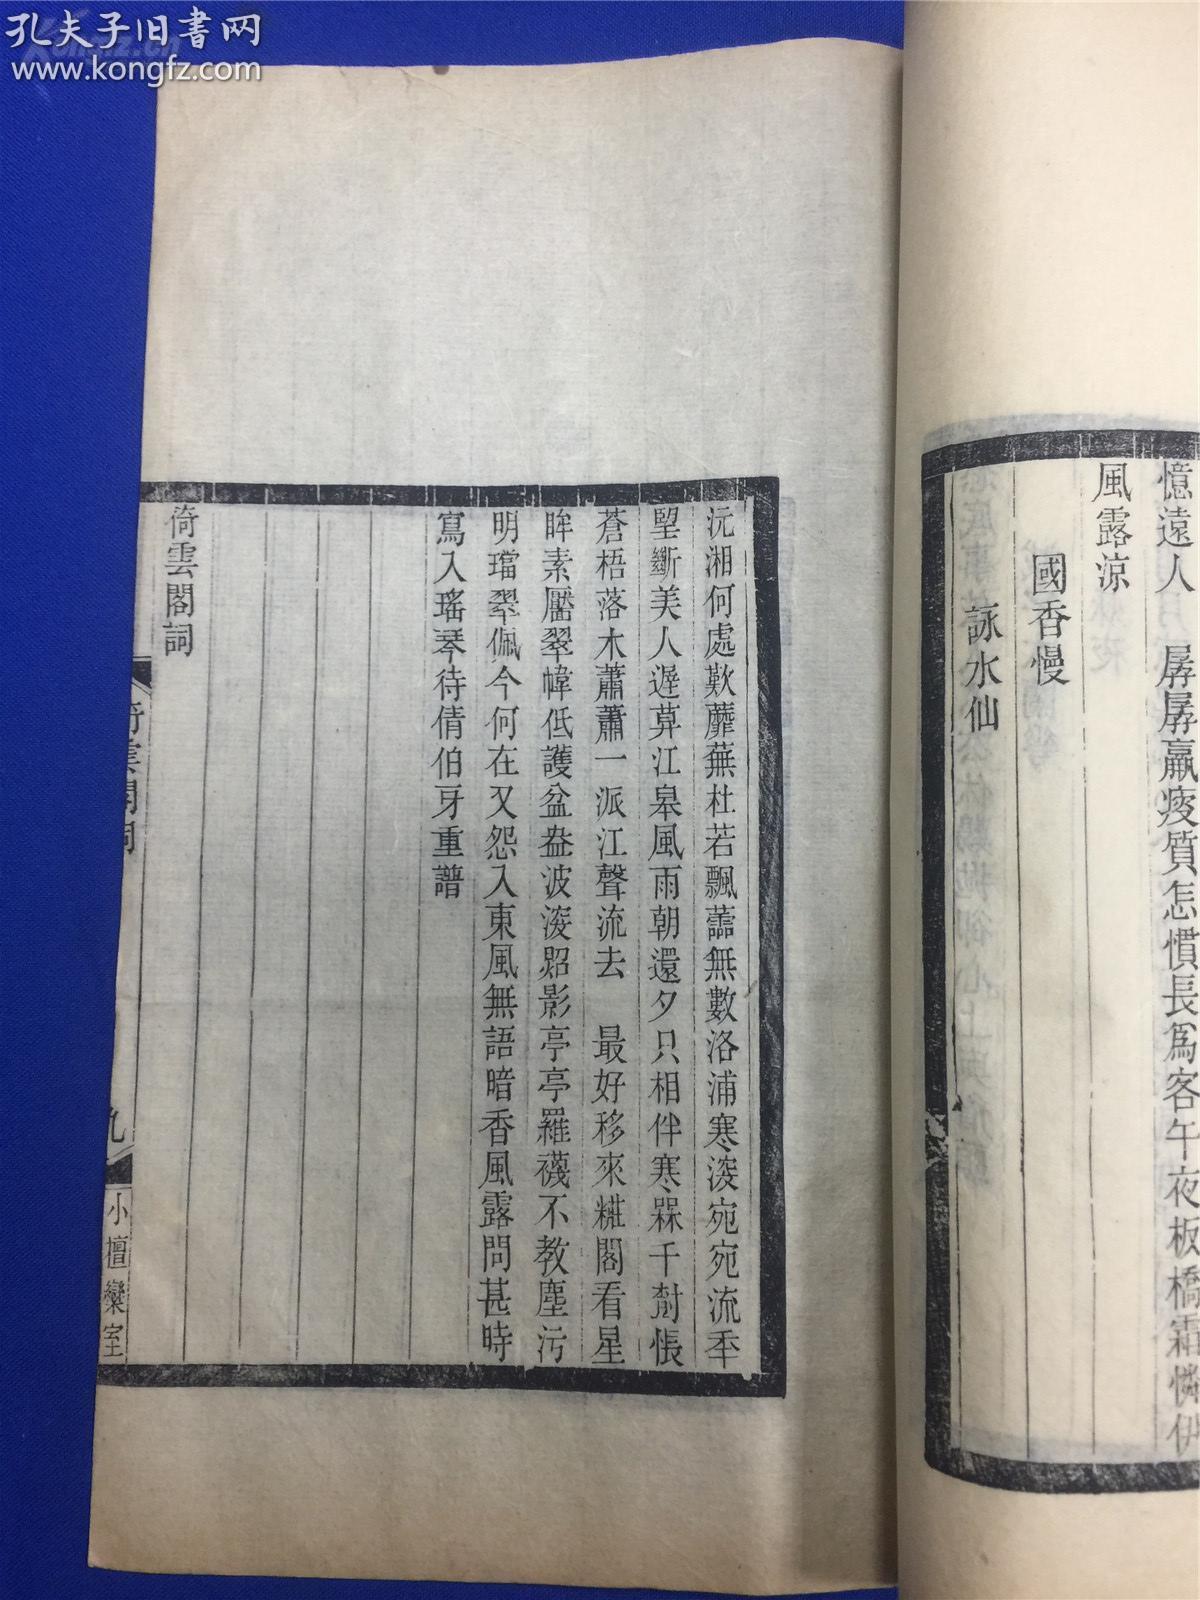 孔夫子旧书网
www.kongfz.com
憶遠人　孱孱羸痩質怎慣長爲客午夜板橋霜憐伊
風露涼
國香慢
詠水仙
沅湘何處歎蘼蕪杜若飄蘦無數洛浦寒深宛宛流年
朢斷美人遲莫江皋風雨朝還夕只相伴寒槑千尌悵
蒼梧落木蕭蕭一派江聲流去　最好移來糚閣看星
眸素靨翠幃低護盆盎波深炤影亭亭羅襪不教塵污
明璫翠佩今何在又怨入東風無語暗香風露問甚時
寫入瑤琴待倩伯牙重譜
倚雲閣詞
倚雲閣詞
九
小檀欒室